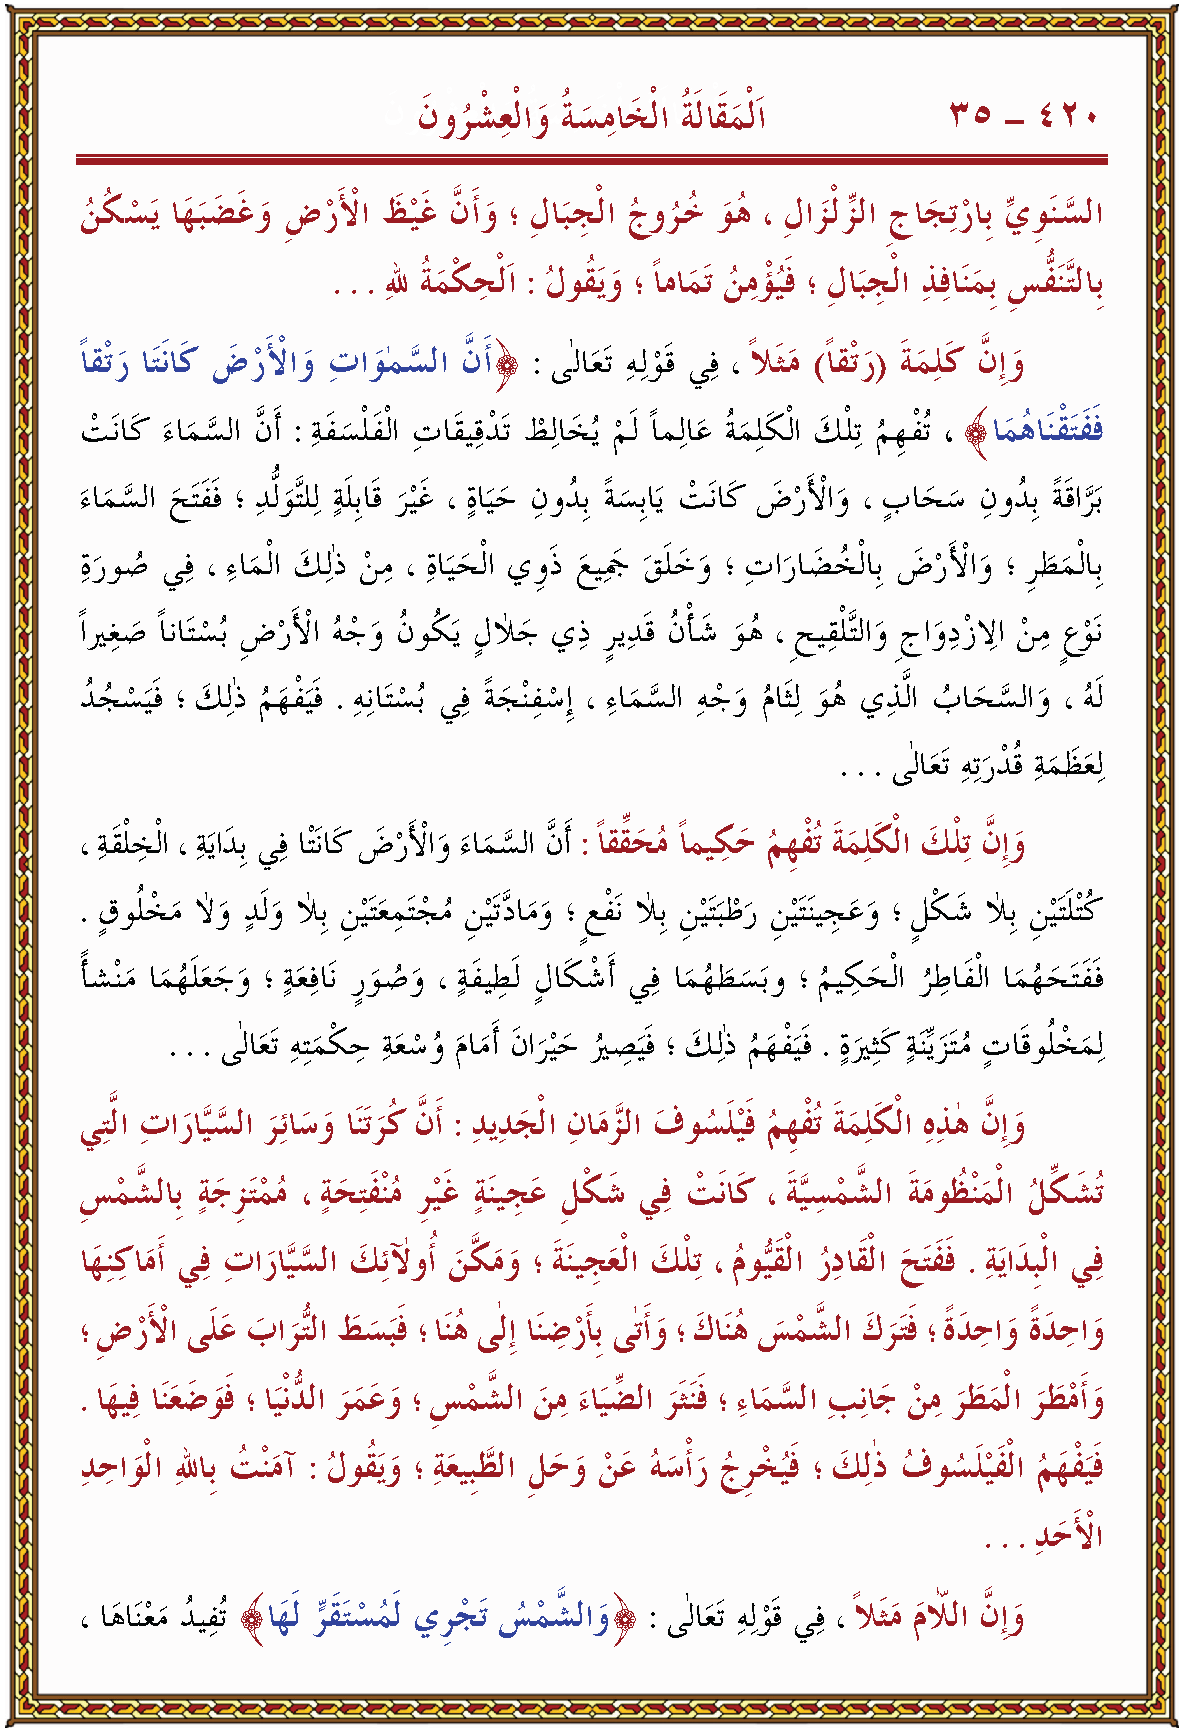 ٤٢٠ – ٣٥ اَلْمَقَالَةُ الْخَامِسَةُ وَالْعِشْرُونَ
السَّنَوِيِّ بِارْتِجَاجِ الزِّلْزَالِ ، هُوَ خُرُوجُ الْجِبَالِ ؛ وَأَنَّ غَيْظَ الْأَرْضِ وَغَضَبَهَا يَسْكُنُ
بِالتَّنَفُّسِ بِمَنَافِذِ الْجِبَالِ ؛ فَيُؤْمِنُ تَمَاماً ؛ وَيَقُولُ : اَلْحِكْمَةُ لِلّٰهِ . . .
وَإِنَّ كَلِمَةَ (رَتْقاً) مَثَلاً ، فِي قَوْلِهِ تَعَالٰى : ﴿أَنَّ السَّمٰوَاتِ وَالْأَرْضَ كَانَتَا رَتْقاً
فَفَتَقْنَاهُمَا﴾ ، تُفْهِمُ تِلْكَ الْكَلِمَةُ عَالِماً لَمْ يُخَالِطْ تَدْقِيقَاتِ الْفَلْسَفَةِ : أَنَّ السَّمَاءَ كَانَتْ
بَرَّاقَةً بِدُونِ سَحَابٍ ، وَالْأَرْضَ كَانَتْ يَابِسَةً بِدُونِ حَيَاةٍ ، غَيْرَ قَابِلَةٍ لِلتَّوَلُّدِ ؛ فَفَتَحَ السَّمَاءَ
بِالْمَطَرِ ؛ وَالْأَرْضَ بِالْخُضَارَاتِ ؛ وَخَلَقَ جَمِيعَ ذَوِي الْحَيَاةِ ، مِنْ ذٰلِكَ الْمَاءِ ، فِي صُورَةِ
نَوْعٍ مِنْ الِازْدِوَاجِ وَالتَّلْقِيحِ ، هُوَ شَأْنُ قَدِيرٍ ذِي جَلَالٍ يَكُونُ وَجْهُ الْأَرْضِ بُسْتَاناً صَغِيراً
لَهُ ، وَالسَّحَابُ الَّذِي هُوَ لِثَامُ وَجْهِ السَّمَاءِ ، إِسْفِنْجَةً فِي بُسْتَانِهِ . فَيَفْهَمُ ذٰلِكَ ؛ فَيَسْجُدُ
لِعَظَمَةِ قُدْرَتِهِ تَعَالٰى . . .
وَإِنَّ تِلْكَ الْكَلِمَةَ تُفْهِمُ حَكِيماً مُحَقِّقاً : أَنَّ السَّمَاءَ وَالْأَرْضَ كَانَتْا فِي بِدَايَةِ ، الْخِلْقَةِ ،
كُتْلَتَيْنِ بِلَا شَكْلٍ ؛ وَعَجِينَتَيْنِ رَطْبَتَيْنِ بِلَا نَفْعٍ ؛ وَمَادَّتَيْنِ مُجْتَمِعَتَيْنِ بِلَا وَلَدٍ وَلَا مَخْلُوقٍ .
فَفَتَحَهُمَا الْفَاطِرُ الْحَكِيمُ ؛ وبَسَطَهُمَا فِي أَشْكَالٍ لَطِيفَةٍ ، وَصُوَرٍ نَافِعَةٍ ؛ وَجَعَلَهُمَا مَنْشَأً
لِمَخْلُوقَاتٍ مُتَزَيِّنَةٍ كَثِيرَةٍ . فَيَفْهَمُ ذٰلِكَ ؛ فَيَصِيرُ حَيْرَانَ أَمَامَ وُسْعَةِ حِكْمَتِهِ تَعَالٰى . . .
وَإِنَّ هٰذِهِ الْكَلِمَةَ تُفْهِمُ فَيْلَسُوفَ الزَّمَانِ الْجَدِيدِ : أَنَّ كُرَتَنَا وَسَائِرَ السَّيَّارَاتِ الَّتِي
تُشَكِّلُ الْمَنْظُومَةَ الشَّمْسِيَّةَ ، كَانَتْ فِي شَكْلِ عَجِينَةٍ غَيْرِ مُنْفَتِحَةٍ ، مُمْتَزِجَةٍ بِالشَّمْسِ
فِي الْبِدَايَةِ . فَفَتَحَ الْقَادِرُ الْقَيُّومُ ، تِلْكَ الْعَجِينَةَ ؛ وَمَكَّنَ أُولٰئِكَ السَّيَّارَاتِ فِي أَمَاكِنِهَا
وَاحِدَةً وَاحِدَةً ؛ فَتَرَكَ الشَّمْسَ هُنَاكَ ؛ وَأَتٰى بِأَرْضِنَا إِلٰى هُنَا ؛ فَبَسَطَ التُّرَابَ عَلَى الْأَرْضِ ؛
وَأَمْطَرَ الْمَطَرَ مِنْ جَانِبِ السَّمَاءِ ؛ فَنَثَرَ الضِّيَاءَ مِنَ الشَّمْسِ ؛ وَعَمَرَ الدُّنْيَا ؛ فَوَضَعَنَا فِيهَا .
فَيَفْهَمُ الْفَيْلَسُوفُ ذٰلِكَ ؛ فَيُخْرِجُ رَأْسَهُ عَنْ وَحَلِ الطَّبِيعَةِ ؛ وَيَقُولُ : آمَنْتُ بِاللّٰهِ الْوَاحِدِ
الْأَحَدِ . . .
وَإِنَّ اللَّامَ مَثَلاً ، فِي قَوْلِهِ تَعَالٰى : ﴿وَالشَّمْسُ تَجْرِي لِمُسْتَقَرٍّ لَهَا﴾ تُفِيدُ مَعْنَاهَا ،